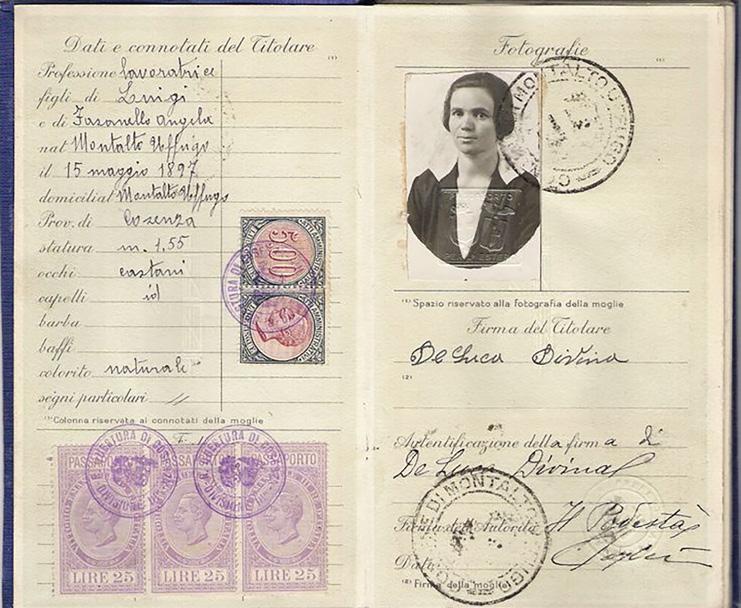 Dati e connotati del Titolare
(1)
Professione lavoratrice
figli di Luigi
e di Fasanello Angela
nat Montalto Uffugo
il 15 maggio 1897
domiciliat Montalto Uffugo
Prov. di Cosenza
statura m. 1,55
occhi castani
capelli id
barba
baffi
colorito naturale
segni particolari //
(1) Colonna riservata ai connotati della moglie
LIRE 25
LIRE 25
LIRE 25
Fotografie
(1)
MONTALTO UFFUGO
(1) Spazio riservato alla fotografia della moglie
Firma del Titolare
De Luca Divina
(2)
Autentificazione della firma di
De Luca Divina
DI MONTALTO
Firma dell'Autorità Il Podestà
Data
(2) Firma della moglie